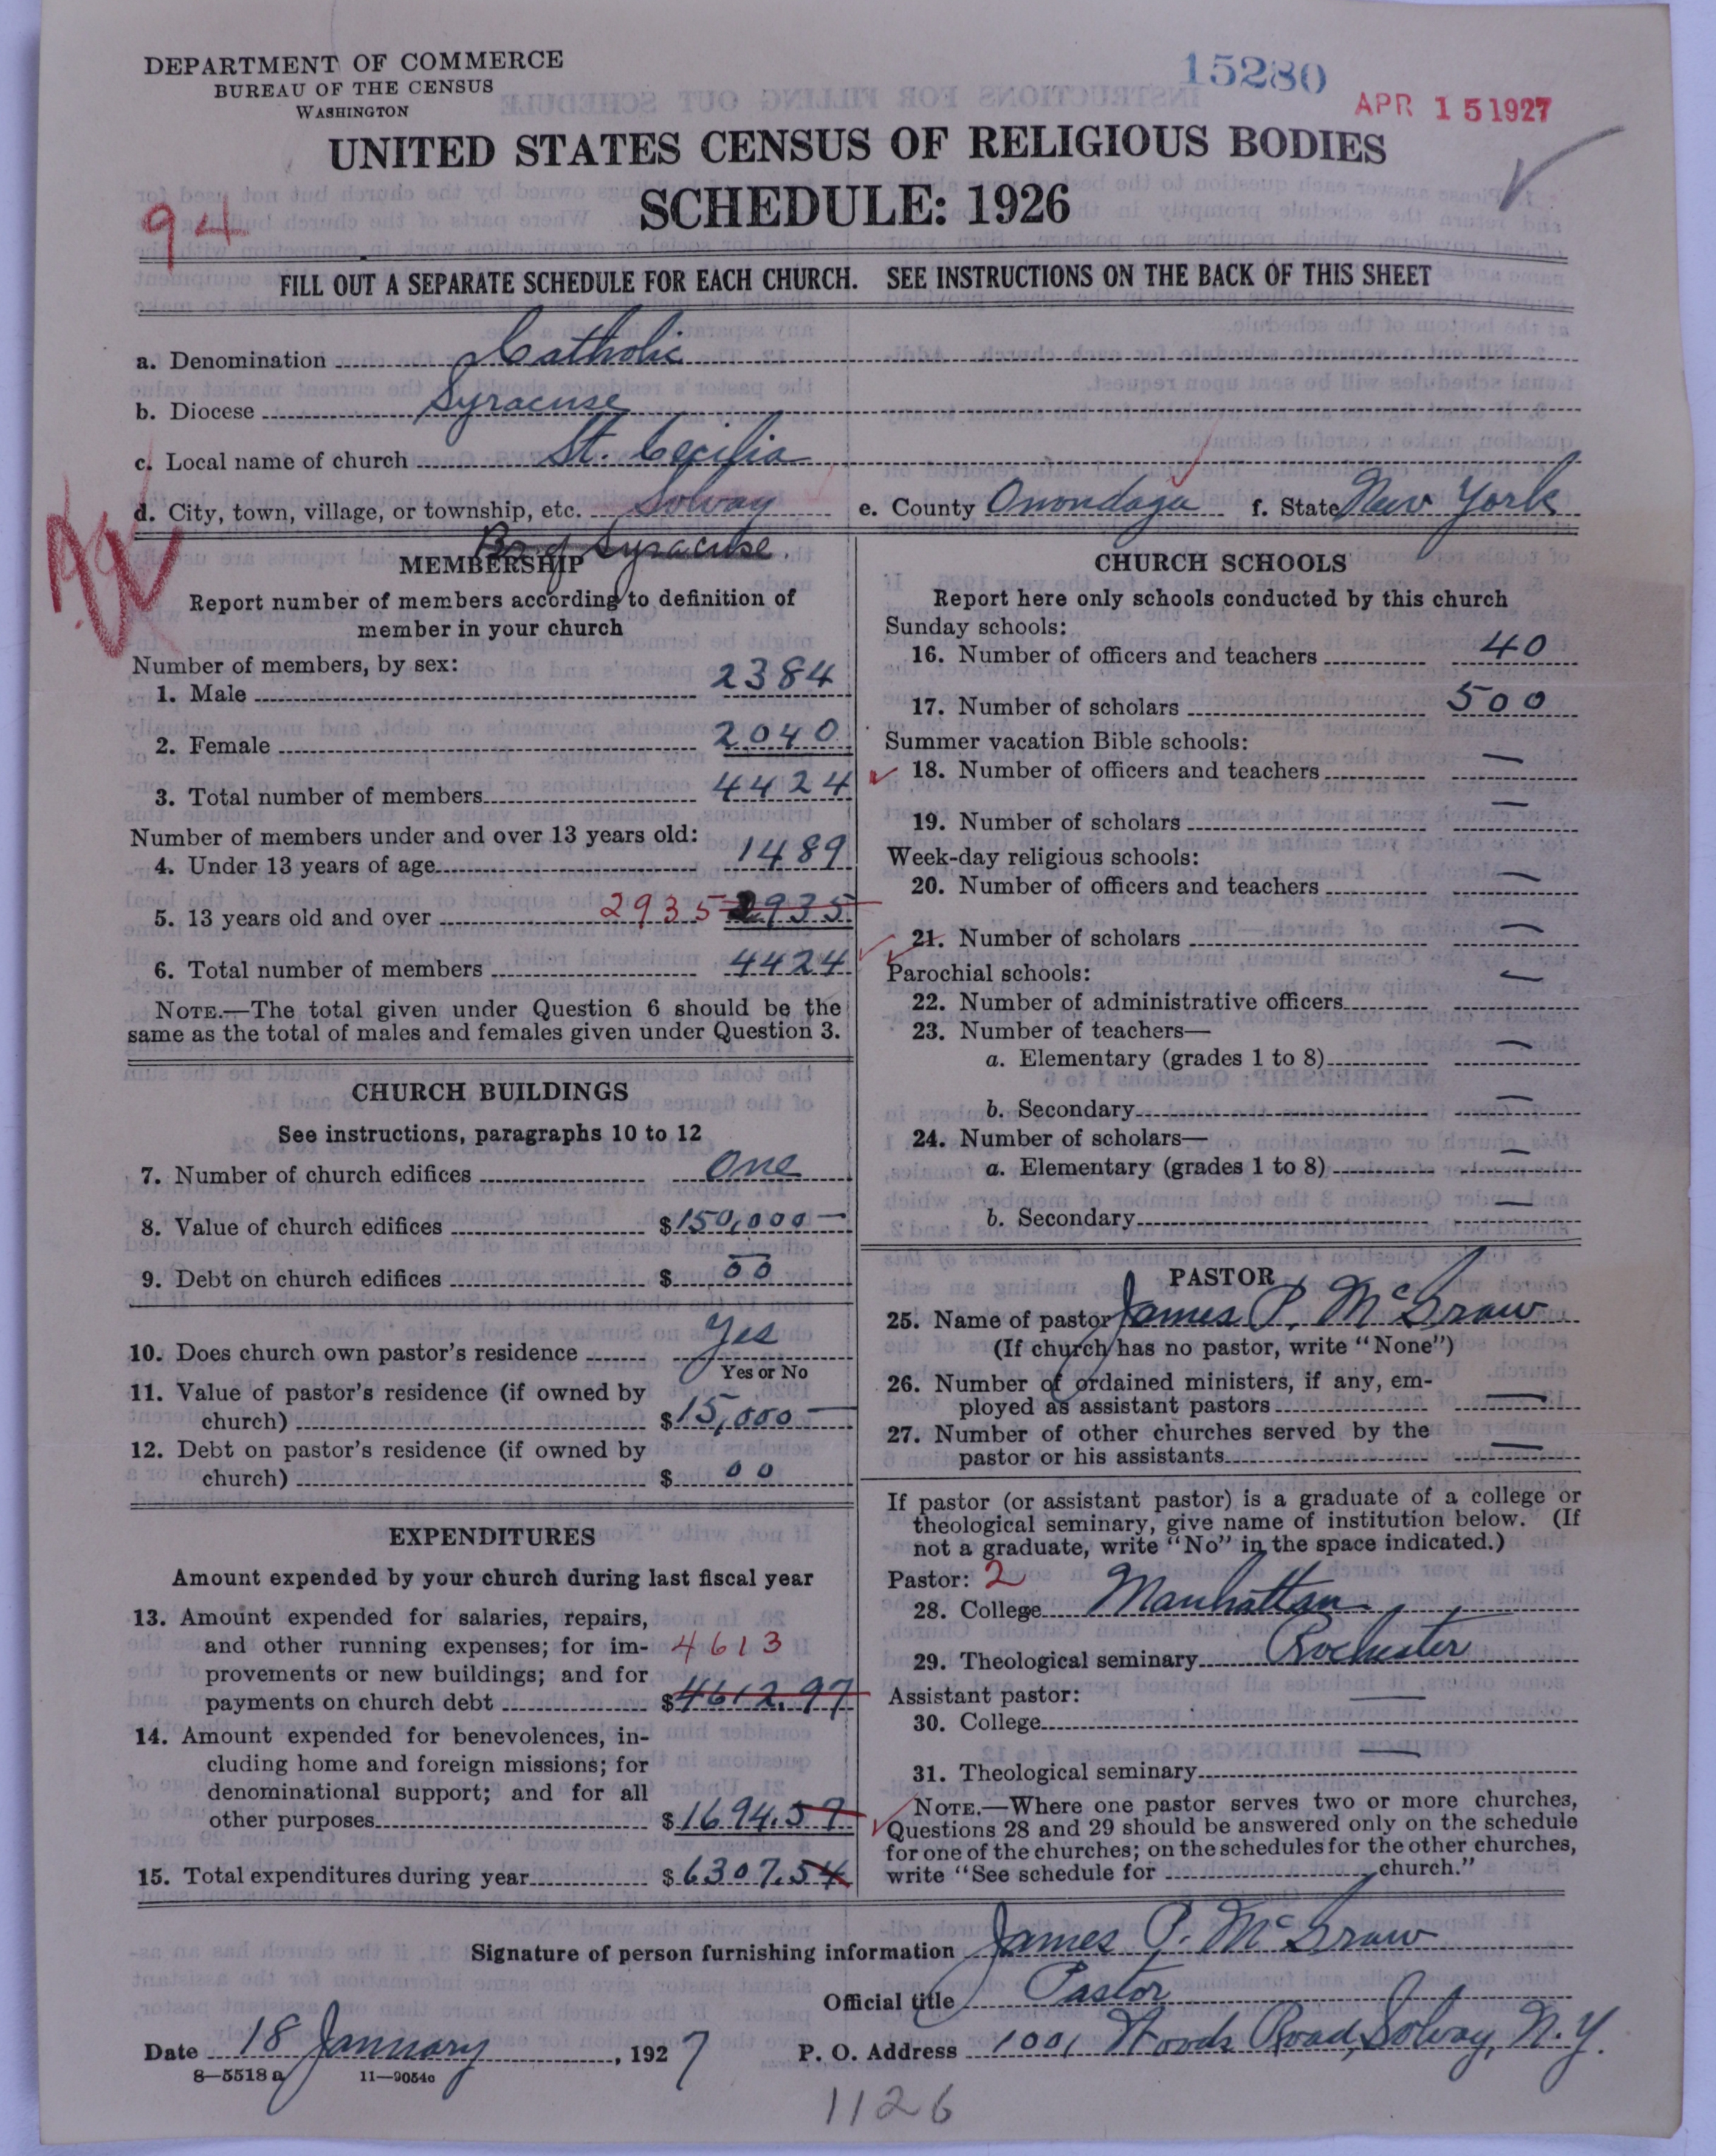 DEPARTMENT OF COMMERCE
BUREAU OF THE CENSUS
WASHINGTON
15280
APR 15 1927
UNITED STATES CENSUS OF RELIGIOUS BODIES
SCHEDULE: 1926
94
FILL OUT A SEPARATE SCHEDULE FOR EACH CHURCH. SEE INSTRUCTIONS ON THE BACK OF THIS SHEET
a. Denomination Catholic
b. Diocese Syracuse
c. Local name of church St. Cecilia
d. City, town, village, or township, etc. Solvay e. County Onondaga f. State New York
Br of Syracuse.
MEMBERSHIP
Report number of members according to definition of
member in your church
Number of members, by sex:
1. Male 2384
2. Female 2040
3. Total number of members 4424
Number of members under and over 13 years old:
4. Under 13 years of age 1489
5. 13 years old and over 2935 2935
6. Total number of members 4424
NOTE.—The total given under Question 6 should be the
same as the total of males and females given under Question 3.
CHURCH BUILDINGS
See instructions, paragraphs 10 to 12
7. Number of church edifices One
8. Value of church edifices $150,000—
9. Debt on church edifices $ 00
10. Does church own pastor's residence Yes
Yes or No
11. Value of pastor's residence (if owned by
church) $15,000—
12. Debt on pastor's residence (if owned by
church) $ 00
EXPENDITURES
Amount expended by your church during last fiscal year
13. Amount expended for salaries, repairs,
and other running expenses; for im- 4613
provements or new buildings; and for
payments on church debt $4612.97
14. Amount expended for benevolences, in-
cluding home and foreign missions; for
denominational support; and for all
other purposes $1694.57
15. Total expenditures during year $6307.54
CHURCH SCHOOLS
Report here only schools conducted by this church
Sunday schools:
16. Number of officers and teachers 40
17. Number of scholars 500
Summer vacation Bible schools:
18. Number of officers and teachers —
19. Number of scholars —
Week-day religious schools:
20. Number of officers and teachers —
21. Number of scholars —
Parochial schools:
22. Number of administrative officers —
23. Number of teachers—
a. Elementary (grades 1 to 8) —
b. Secondary —
24. Number of scholars—
a. Elementary (grades 1 to 8) —
b. Secondary —
PASTOR
25. Name of pastor James P. McGraw
(If church has no pastor, write "None")
26. Number of ordained ministers, if any, em-
ployed as assistant pastors —
27. Number of other churches served by the
pastor or his assistants —
If pastor (or assistant pastor) is a graduate of a college or
theological seminary, give name of institution below. (If
not a graduate, write "No" in the space indicated.)
Pastor: 2
28. College Manhattan
29. Theological seminary Rochester
Assistant pastor:
30. College —
31. Theological seminary —
NOTE.—Where one pastor serves two or more churches,
Questions 28 and 29 should be answered only on the schedule
for one of the churches; on the schedules for the other churches,
write "See schedule for church."
Signature of person furnishing information James P. McGraw
Official title Pastor
Date 18 January, 1927 P. O. Address 1001 Woods Road, Solvay, N.Y.
8—5518 a 11—9054c
1126